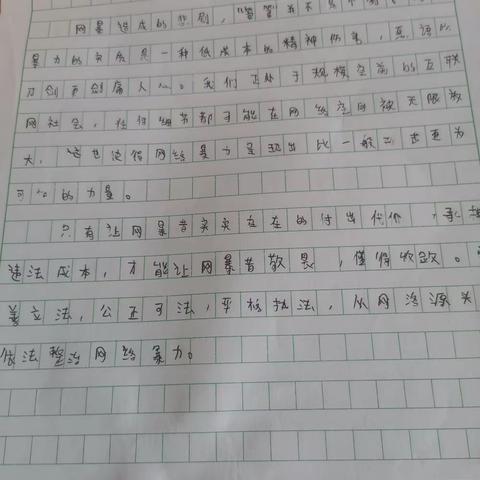 网暴造成的悲剧，
暴力的实质是一种低成本的精神伤害，恶语如
刀剑更剑屠人心。我们正处于规模空前的互联
网社会，任何细节都可能在网络空间被无限放
大，这也使得网络暴力呈现出比一般 更为
可 的力量。
只有让网暴者实实在在的付出代价，承担
违法成本，才能让网暴者敬畏，懂得收敛。
善立法，公正司法，严格执法，从网络源头
依法整治网络暴力。